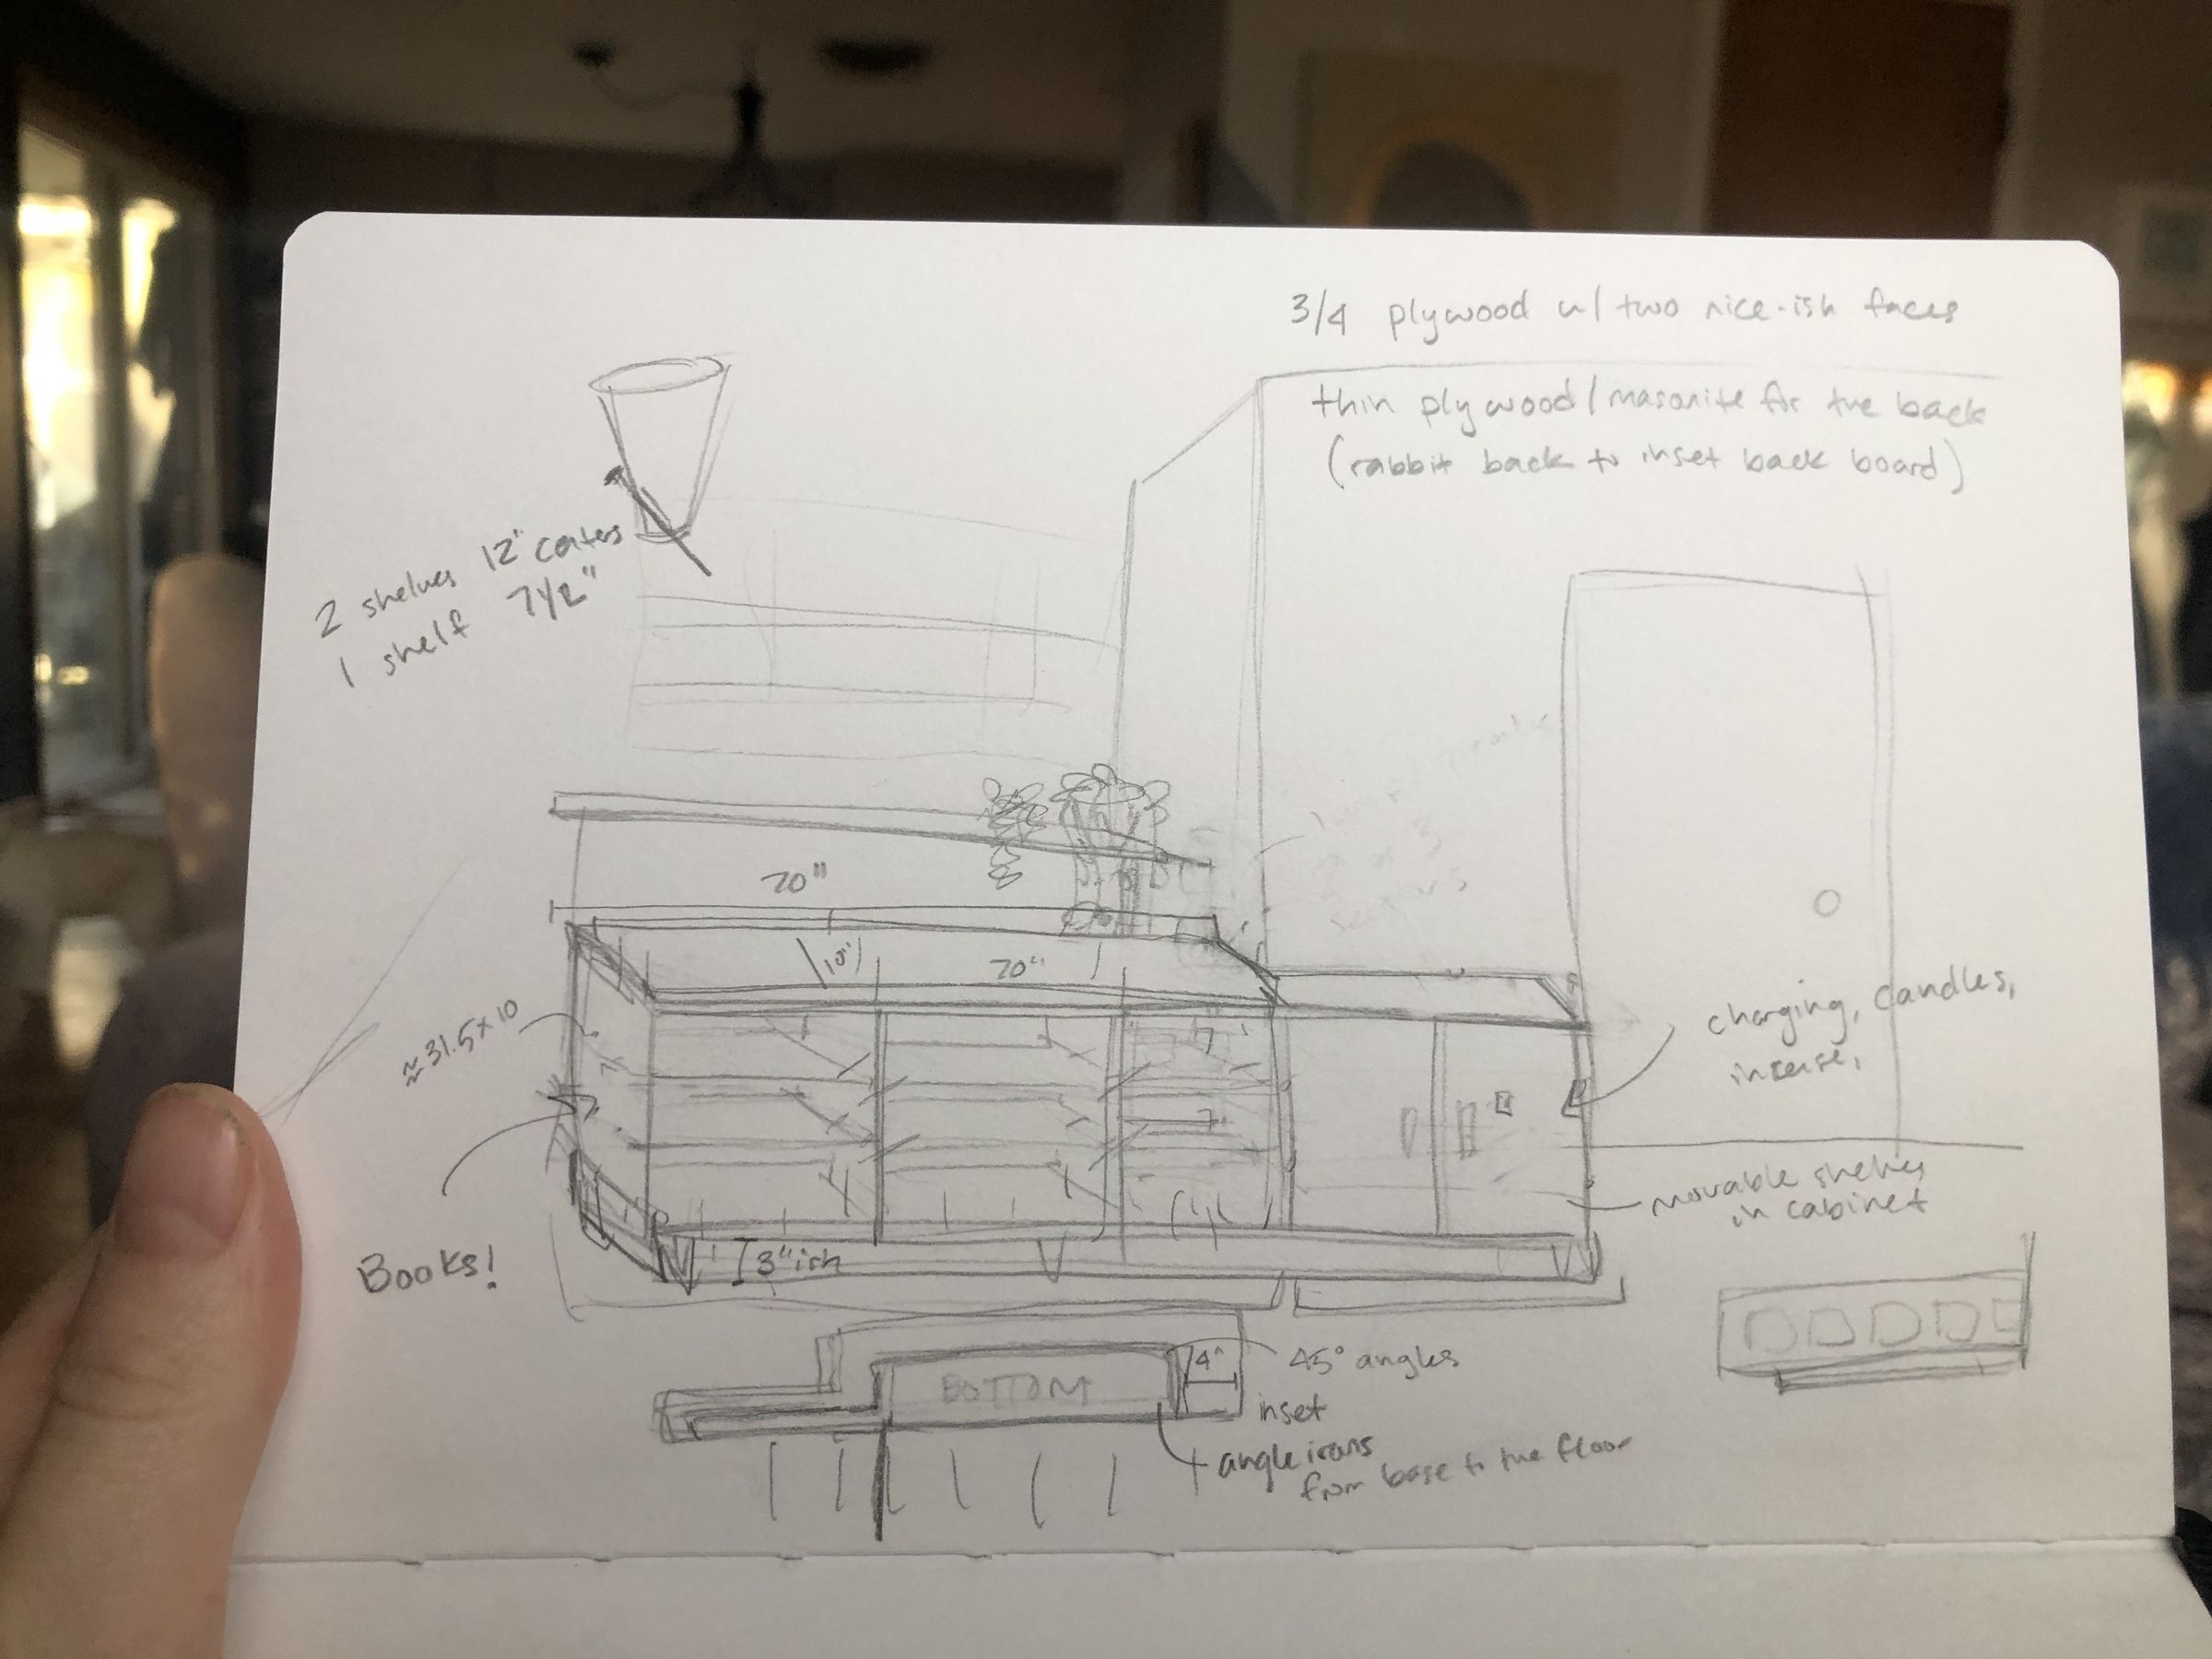 3/4 plywood w/ two nice-ish faces
thin plywood/masonite for the back
(rabbit back to inset back board)
2 shelves 12" centers
1 shelf 7 1/2"
70"
10"
70"
≈31.5×10
charging, candles,
incense,
movable shelves
in cabinet
Books!
3"ish
BOTTOM
4"
45° angles
inset
angle irons
from base to the floor